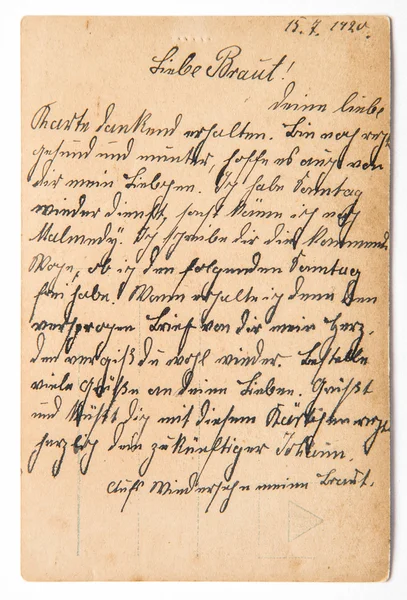 15.7.1920.
Liebe Braut!
Deine liebe
Karte dankend erhalten. Bin noch recht
gesund und munter, hoffe es auch von
dir mein Liebchen. Ich habe Sonntag
wieder dienst, sonst käme ich nach
Malmedy. Ich schreibe dir die kommende
Woche, ob ich den folgenden Sonntag
frei habe. Wann erhalte ich denn den
versprochen Brief von dir mein Herz,
den vergißt du wohl wieder. Bestelle
viele Grüße an deine Lieben. Grüßt
und küßt dich mit diesem Kärtchen recht
herzlich dein zukünftiger
Aufs Wiedersehn meine Braut.